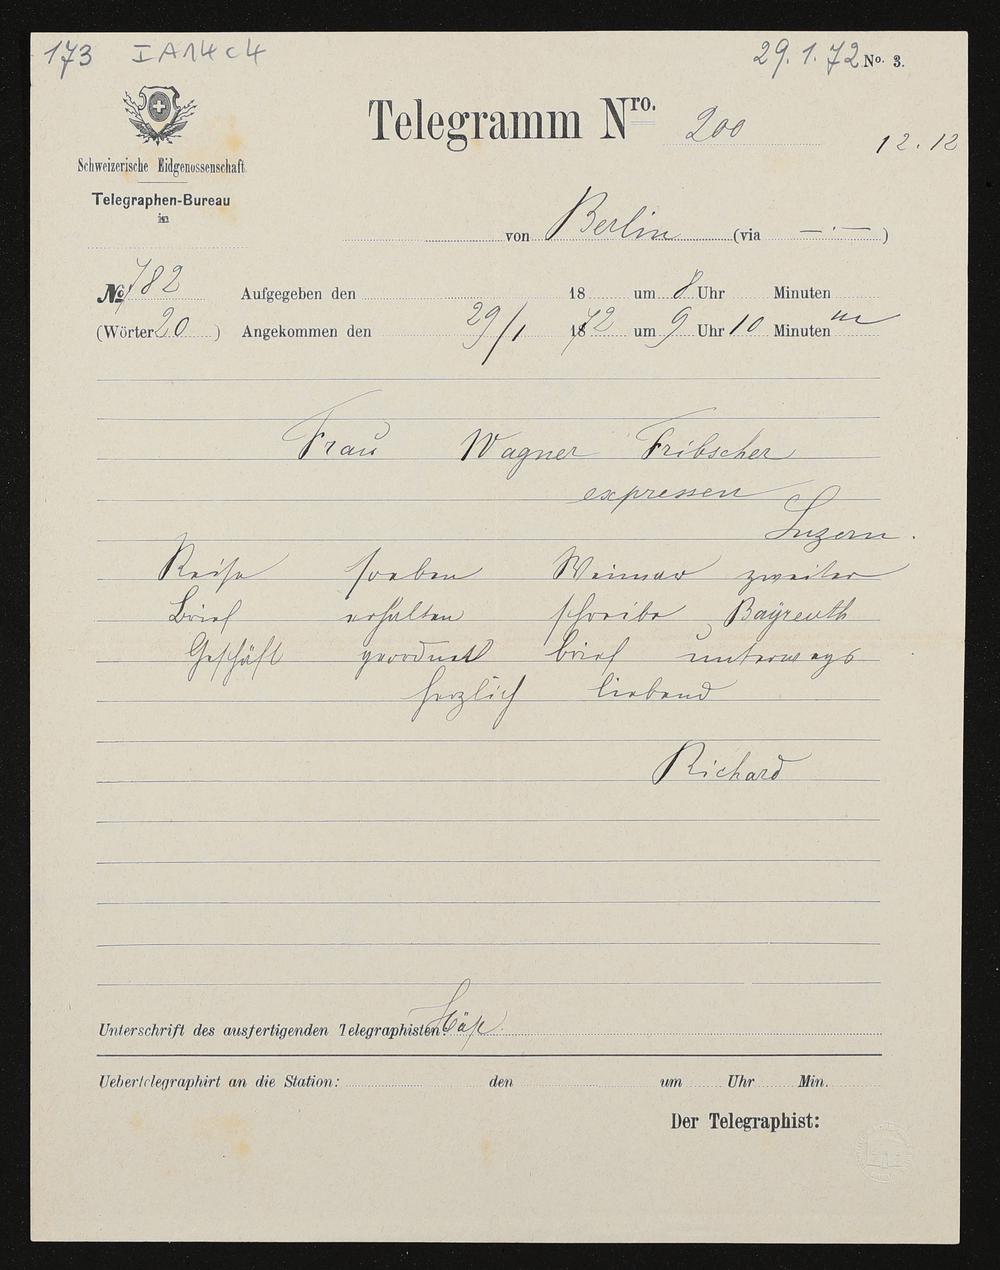 173 I A 14 c 4
29. 1. 72 No. 3.
Telegramm Nro. 200
12. 12
Schweizerische Eidgenossenschaft
Telegraphen-Bureau
in
von Berlin (via —·—)
No 782 Aufgegeben den 18 um 8 Uhr Minuten
(Wörter 20) Angekommen den 29/1 1872 um 9 Uhr 10 Minuten m
Frau Wagner Tribscher
expressen
Luzern.
Reise soeben Weimar zweiter
Brief erhalten schreibe Bayreuth
Geschäft geordnet brief unterwegs
herzlich liebend
Richard
Unterschrift des ausfertigenden Telegraphisten:
Uebertelegraphirt an die Station: den um Uhr Min.
Der Telegraphist: